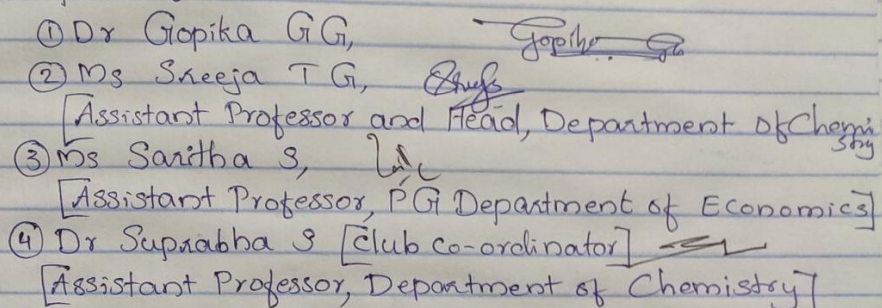 ① Dr Gopika G G, Gopika GG
② Ms Sreeja T G,
[Assistant Professor and Head, Department of Chemistry
③ Ms Saritha S,
[Assistant Professor, PG Department of Economics]
④ Dr Suprabha S [Club co-ordinator]
[Assistant Professor, Department of Chemistry]